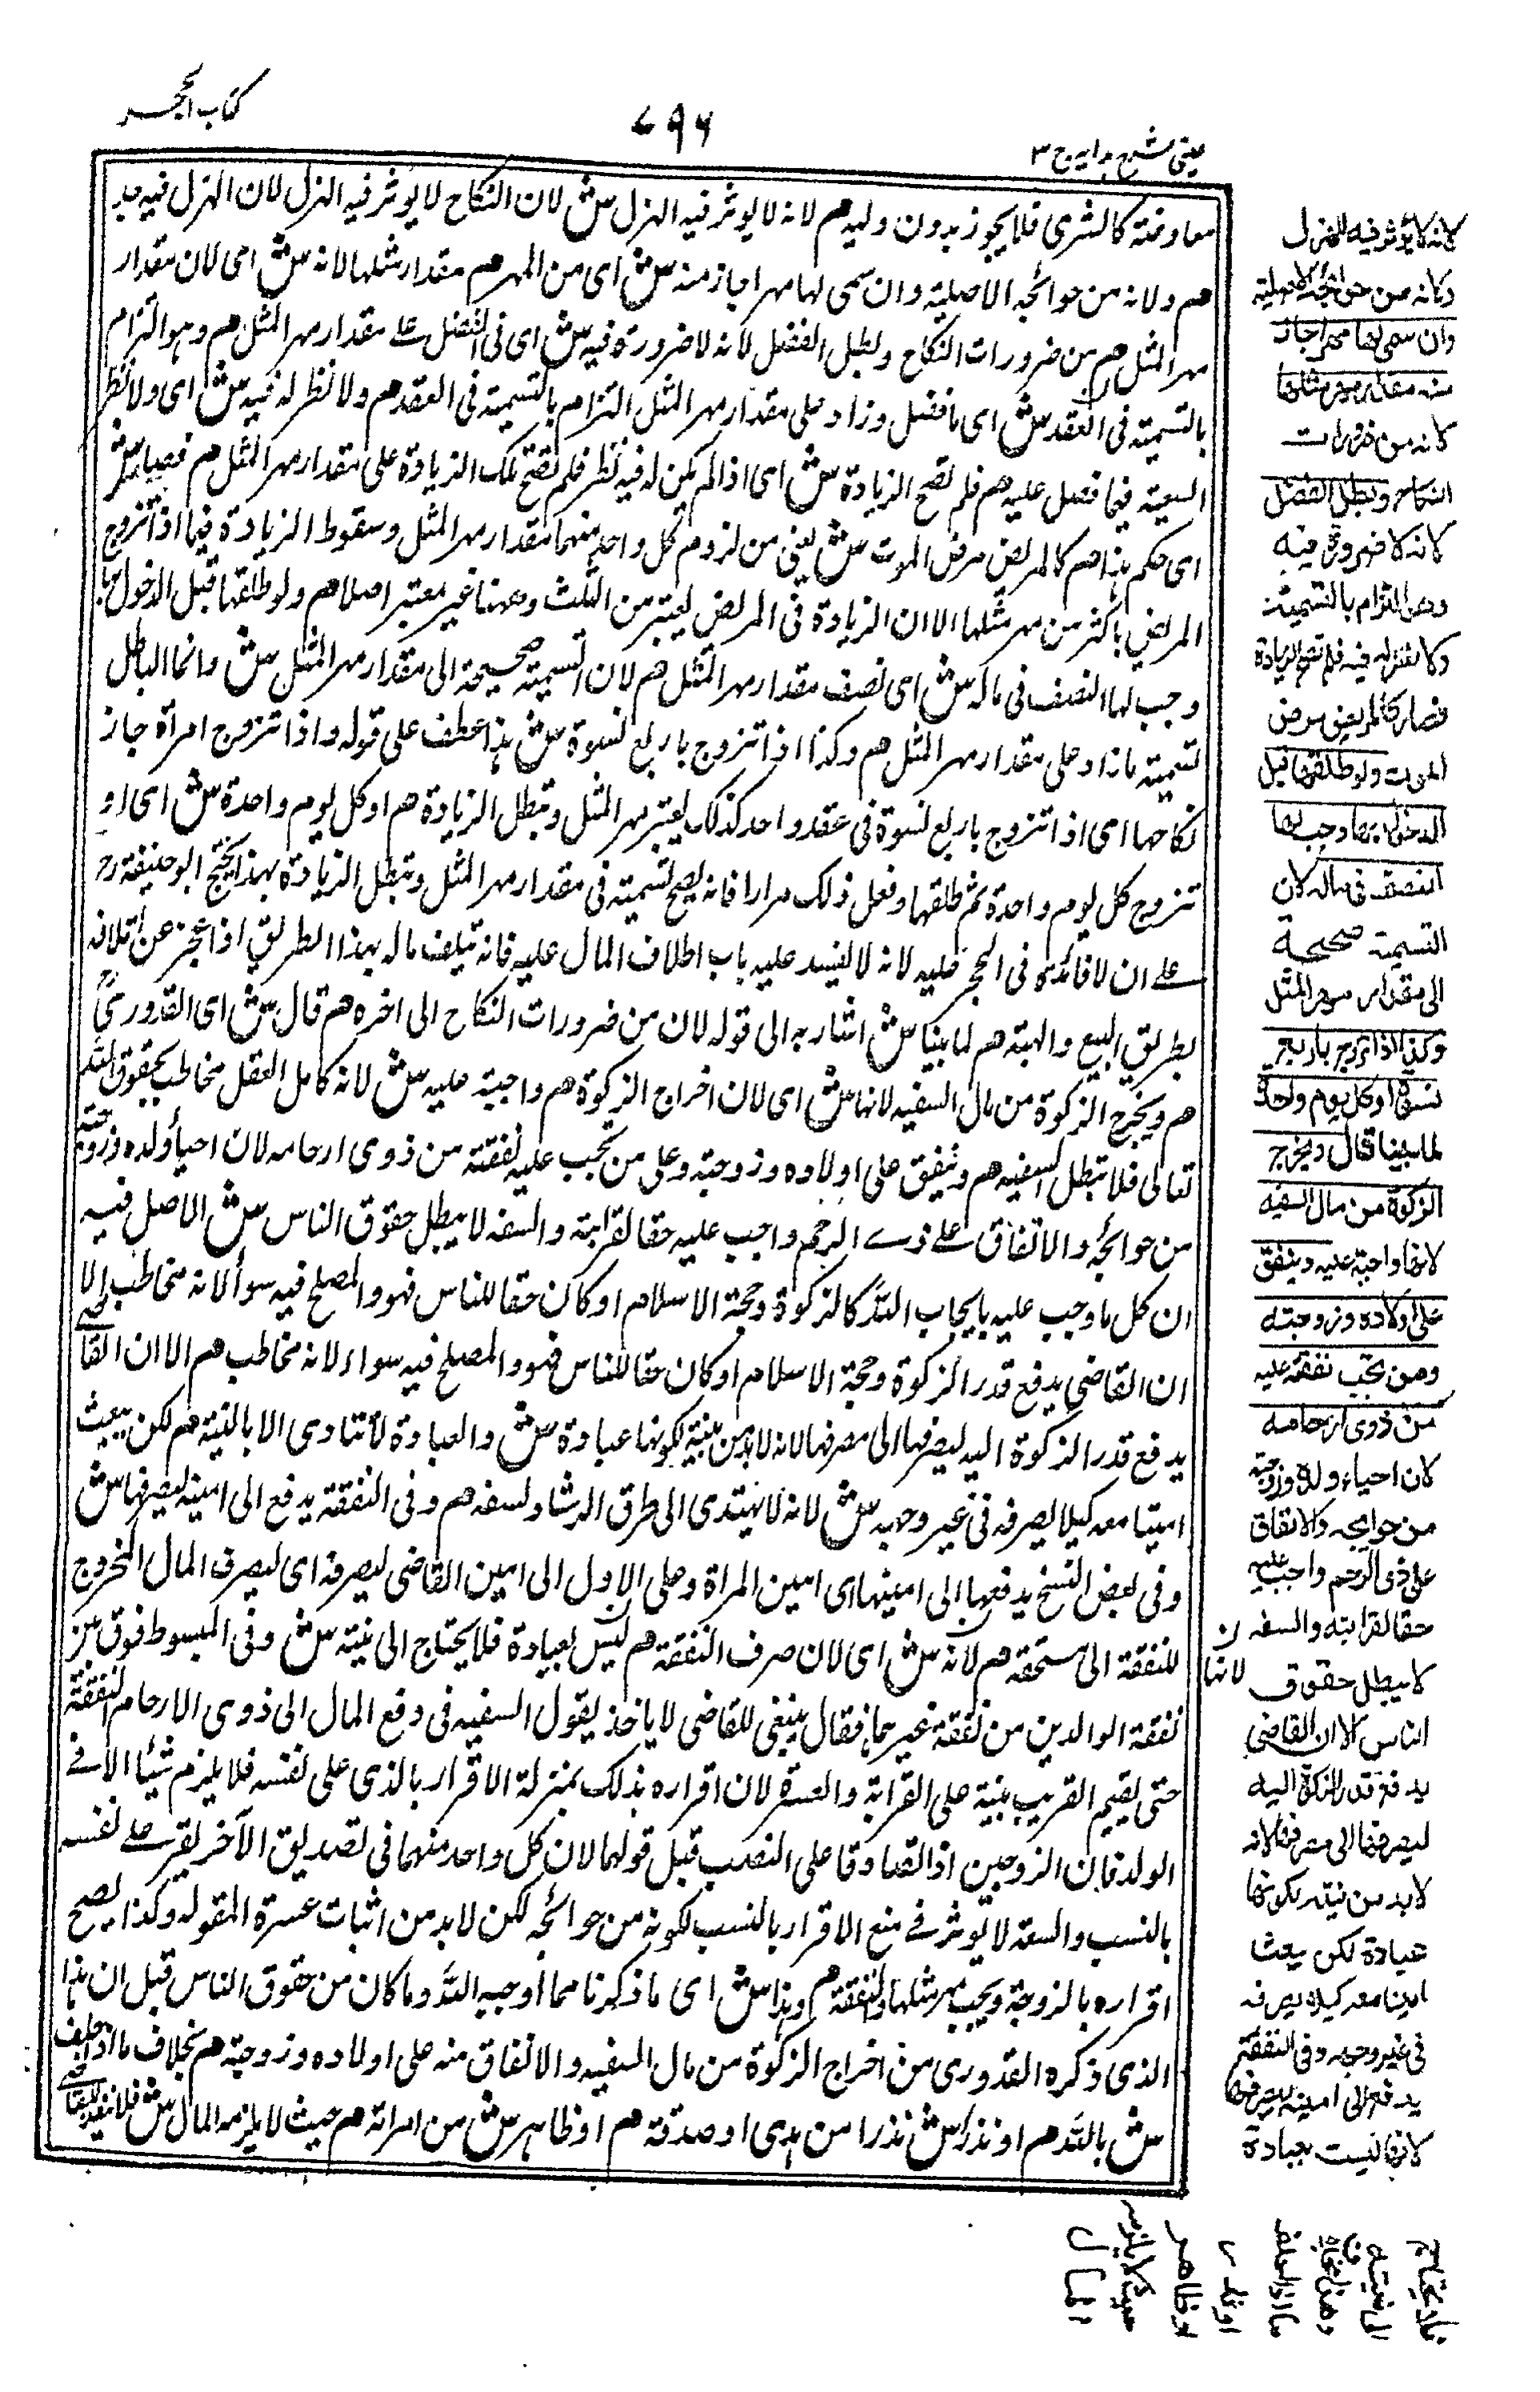 كتاب الحجر
٧٩٦
عينى شرح هدايه ج ٣
معاوضة كالشرى فلا يجوز بدون وليه هم لانه لا يوثر فيه الهزل ش لان النكاح لا يوثر فيه الهزل لان الهزل فيه جد
هم ولانه من حوائجه الاصلية وان سمى لها مهرا جاز منه ش اى من المهر هم مقدار مثلها لانه ش اى لان مقدار
مهر المثل هم من ضرورات النكاح وبطل الفضل لانه لا ضرورة فيه ش اى فى الفضل على مقدار مهر المثل هم وهو التزام
بالتسمية فى العقد ش اى ما فضل وزاد على مقدار مهر المثل التزام بالتسمية فى العقد هم ولا نظر له فيه ش اى ولا نظر
السفيه فيما فضل عليه هم فلم تصح الزيادة ش اى اذا لم يكن له فيه نظر فلم تصح تلك الزيادة على مقدار مهر المثل هم فصار ش
اى حكم هذا هم كالمريض مرض الموت ش يعنى من لزوم كل واحد منهما مقدار مهر المثل وسقوط الزيادة فيما اذا تزوج
المريض باكثر من مهر مثلها الا ان الزيادة فى المريض يعتبر من الثلث وههنا غير معتبر اصلا هم ولو طلقها قبل الدخول بها
وجب لها النصف فى ماله ش اى نصف مقدار مهر المثل هم لان التسمية صحيحة الى مقدار مهر المثل ش وانما الباطل
تسمية ما زاد على مقدار مهر المثل هم وكذا اذا تزوج باربع نسوة ش هذا عطف على قوله واذا تزوج امراة جاز
نكاحها اى اذا تزوج باربع نسوة فى عقد واحد كذلك يعتبر مهر المثل وتبطل الزيادة هم او كل يوم واحدة ش اى او
تزوج كل يوم واحدة ثم طلقها وفعل ذلك مرارا فانه يصح تسمية فى مقدار مهر المثل وتبطل الزيادة بهذا يحتج ابو حنيفة رح
على ان لا فائدة فى الحجر عليه لانه لا ينسد عليه باب اطلاف المال عليه فانه يتلف ماله بهذا الطريق اذا عجز عن اتلافه
بطريق البيع والهبة هم لما بينا ش اشار به الى قوله لان من ضرورات النكاح الى اخره هم قال ش اى القدورى رح
هم ويخرج الزكوة من مال السفيه لانها ش اى لان اخراج الزكوة هم واجبة عليه ش لانه كامل العقل مخاطب بحقوق الله
تعالى فلا تبطل السفيه هم وينفق على اولاده وزوجته وعلى من تجب عليه نفقته من ذوى ارحامه لان احياء ولده وزوجته
من حوائجه والانفاق على ذى الرحم واجب عليه حقا لقرابته والسفه لا يبطل حقوق الناس ش الاصل فيه
ان كل ما وجب عليه بايجاب الله كالزكوة وحجة الاسلام او كان حقا للناس فهو والمصلح فيه سواء لانه مخاطب الا
ان القاضى يدفع قدر الزكوة وحجة الاسلام او كان حقا للناس فهو والمصلح فيه سواء لانه مخاطب هم الا ان القاضى
يدفع قدر الزكوة اليه ليصرفها الى مصرفها لانه لا بد من نية لكونها عبادة ش والعبادة لا تتادى الا بالنية هم لكن يبعث
امينا معه كيلا يصرفه فى غير وجهه ش لانه لا يهتدى الى طرق الرشاد لسفه هم وفى النفقة يدفع الى امينه ليصرفها ش
وفى بعض النسخ يدفعها الى امينها اى امين المراة وعلى الاول الى امين القاضى ليصرفه اى ليصرف المال المخروج
للنفقة الى مستحقه هم لانه ش اى لان صرف النفقة هم ليس بعبادة فلا يحتاج الى نية ش وفى المبسوط فوق بين
نفقة الوالدين من نفقة غيرهما فقال ينبغى للقاضى لا ياخذ بقول السفيه فى دفع المال الى ذوى الارحام النفقة
حتى يقيم القريب بنية على القرابة والعسرة لان اقراره بذلك بمنزلة الاقرار بالذى على نفسه فلا يلزم شيئا الا فى
الولد فان الزوجين اذا تصادقا على النسب قبل قولهما لان كل واحد منهما فى تصديق الآخر يقر على نفسه
بالنسب والسفه لا يوثر فى منع الاقرار بالنسب لكونه من حوائجه لكن لا بد من اثبات عسرة المقوله وكذا يصح
اقراره بالزوجة ويجب مهر مثلها والنفقة هم وهذا ش اى ما ذكرنا مما اوجبه الله وما كان من حقوق الناس قبل ان هذا
الذى ذكره القدورى من اخراج الزكوة من مال السفيه والانفاق منه على اولاده وزوجته هم بخلاف ما اذا حلف
ش بالله هم او نذر ش نذرا من هدى او صدقة هم او ظاهر ش من امراته هم حيث لا يلزمه المال ش فلا ينفذ القاضى
لانه لا يؤثر فيه الهزل
ولانه من حوائجه الاصلية
وان سمى لها مهرا جاز
منه مقدار مهر مثلها
لانه من ضرورات
النكاح وبطل الفضل
لانه لا ضرورة فيه
وهو التزام بالتسمية
ولا نظر له فيه فلم تصح الزيادة
فصار كالمريض مرض
الموت ولو طلقها قبل
الدخول بها وجب لها
النصف فى ماله لان
التسمية صحيحة
الى مقدار مهر المثل
وكذا اذا تزوج باربع
نسوة او كل يوم واحدة
لما بينا قال ويخرج
الزكوة من مال السفيه
لانها واجبة عليه وينفق
على اولاده وزوجته
ومن تجب نفقته عليه
من ذوى ارحامه
لان احياء ولده وزوجته
من حوايجه والانفاق
على ذى الرحم واجب عليه
حقا لقرابته والسفه
لا يبطل حقوق
الناس الا ان القاضى
يدفع قدر الزكوة اليه
ليصرفها الى مصرفها لانه
لا بد من نيته لكونها
عبادة لكن يبعث
امينا معه كيلا يصرفه
فى غير وجهه وفى النفقة
يدفع الى امينه ليصرفها
لانها ليست بعبادة
ن
لانها
فلا يحتاج
الى نيته
وهذا بخلاف
ما اذا حلف
او نذر
او ظاهر
حيث لا يلزمه
المال